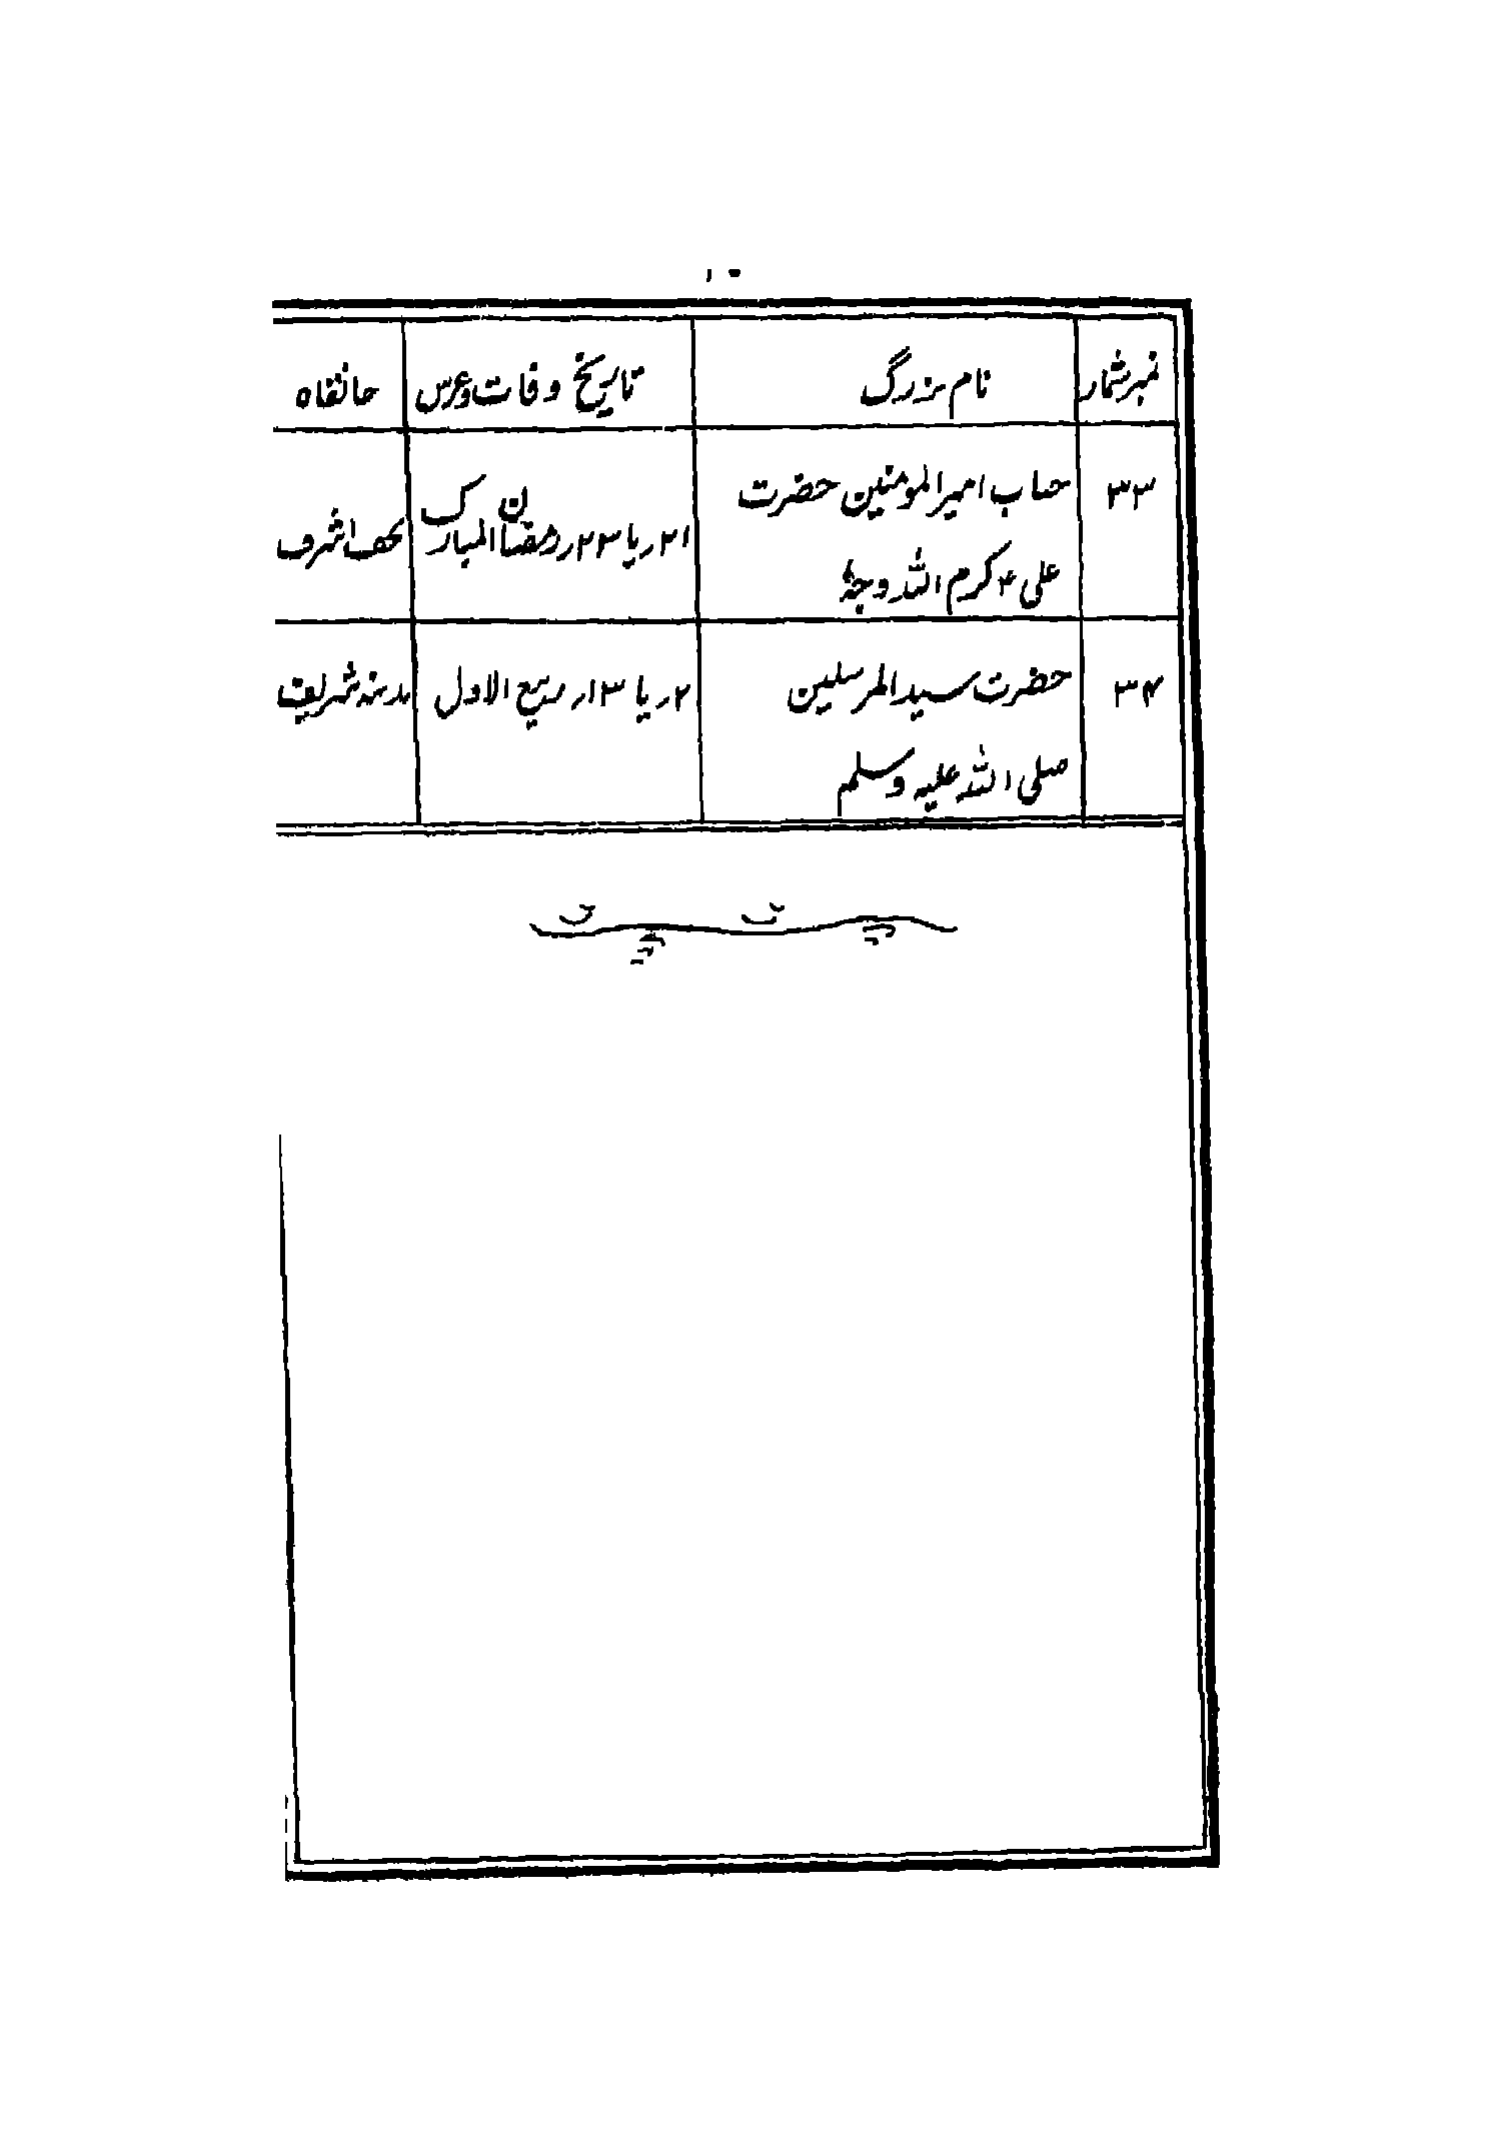 ۱۰
نمبر شمار نام بزرگ تاریخ وفات و عرس خانقاہ
۳۳ جناب امیر المومنین حضرت
علی کرم اللہ وجہہٗ ۲۱ر یا ۲۳ر رمضان المبارک نجف اشرف
۳۴ حضرت سید المرسلین
صلی اللہ علیہ وسلم ۲ر یا ۱۳ر ربیع الاول مدینہ شریف